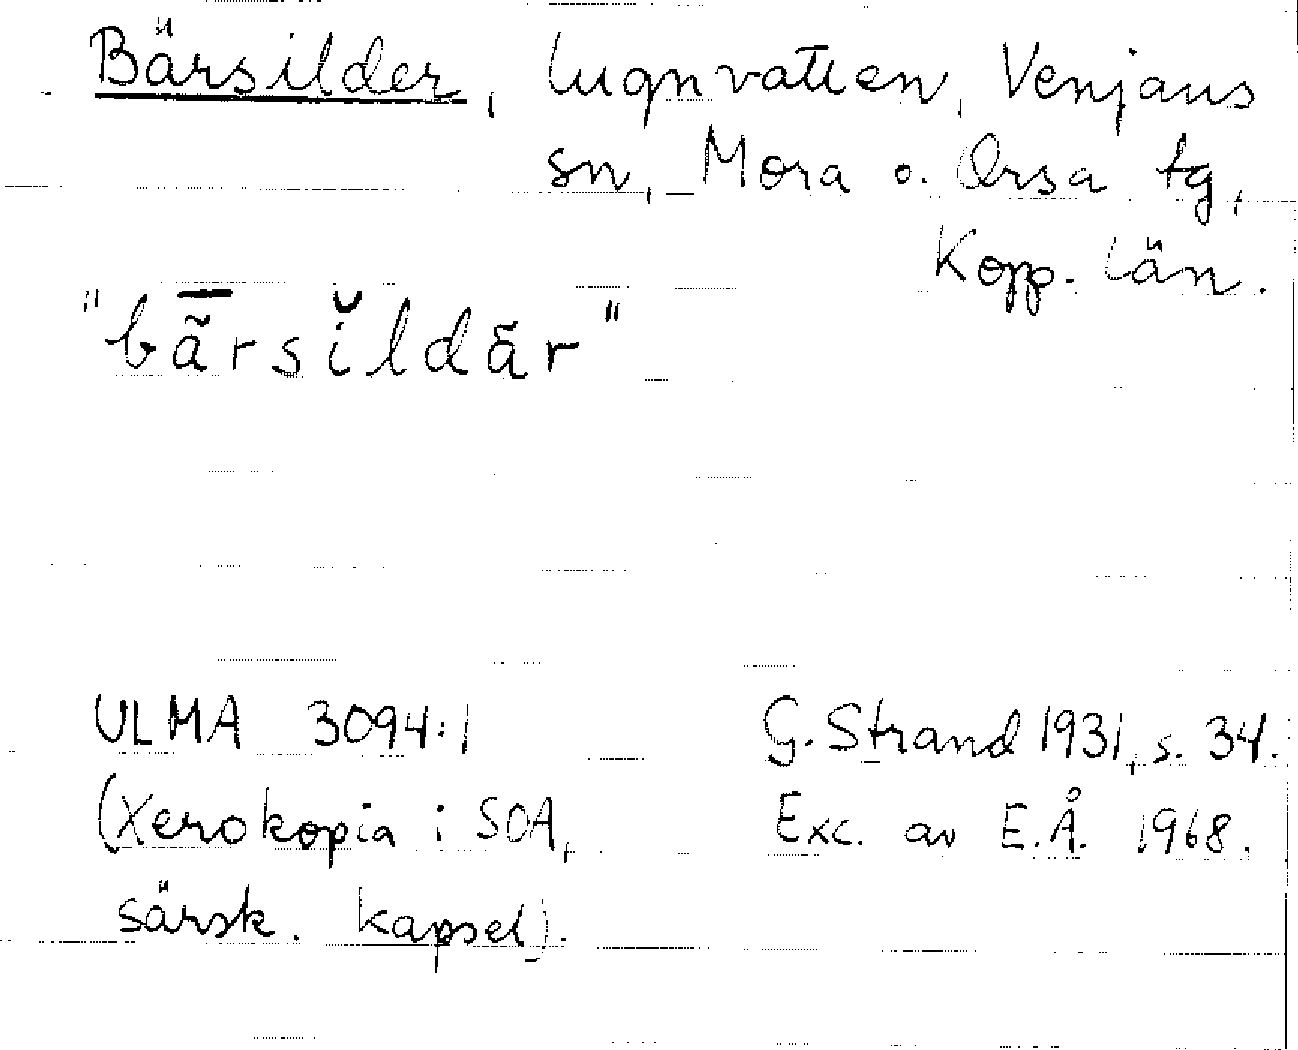 Bärsilder, lugnvatten, Venjans
sn, Mora o. Orsa tg,
Kopp. län.
"bā̃rsĭldãr"
ULMA 3094:1 G. Strand 1931, s. 34.
(Xerokopia i SOA, Exc. av E.Å. 1968.
särsk. kapsel).